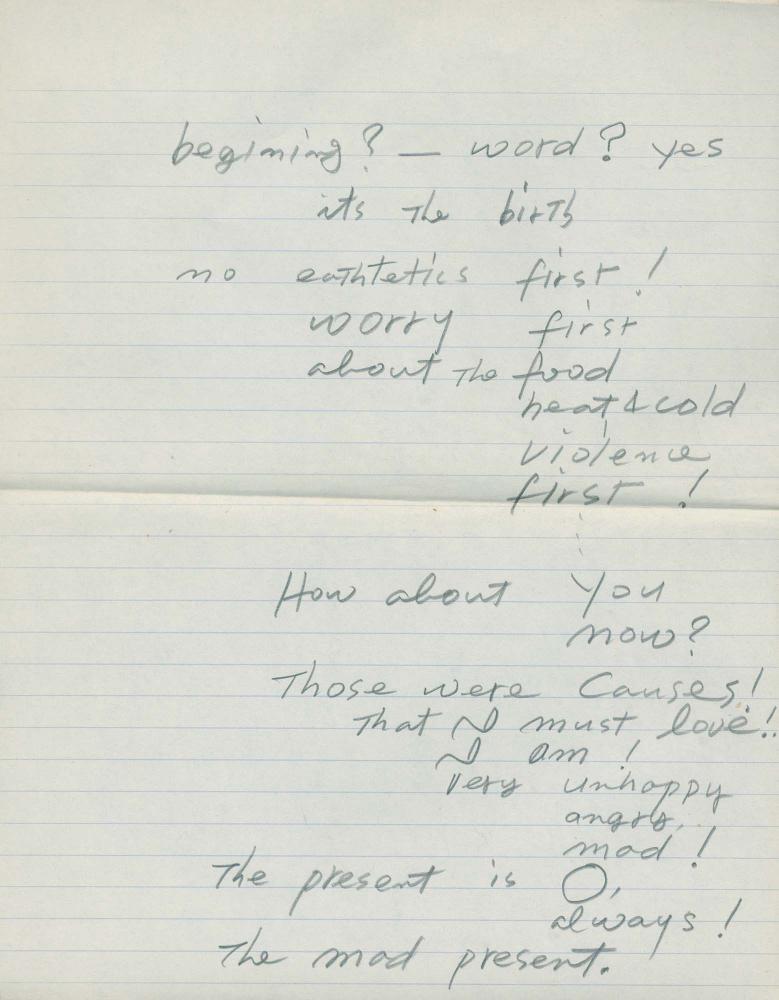 begining? — word? yes
its The birth
no eathtetics first!
worry first
about The food
heat & cold
violence
first!
How about you
now?
Those were Causes!
That I must love!!
I am!
Very unhappy
angry,
mad!
The present is O,
always!
The mad present.